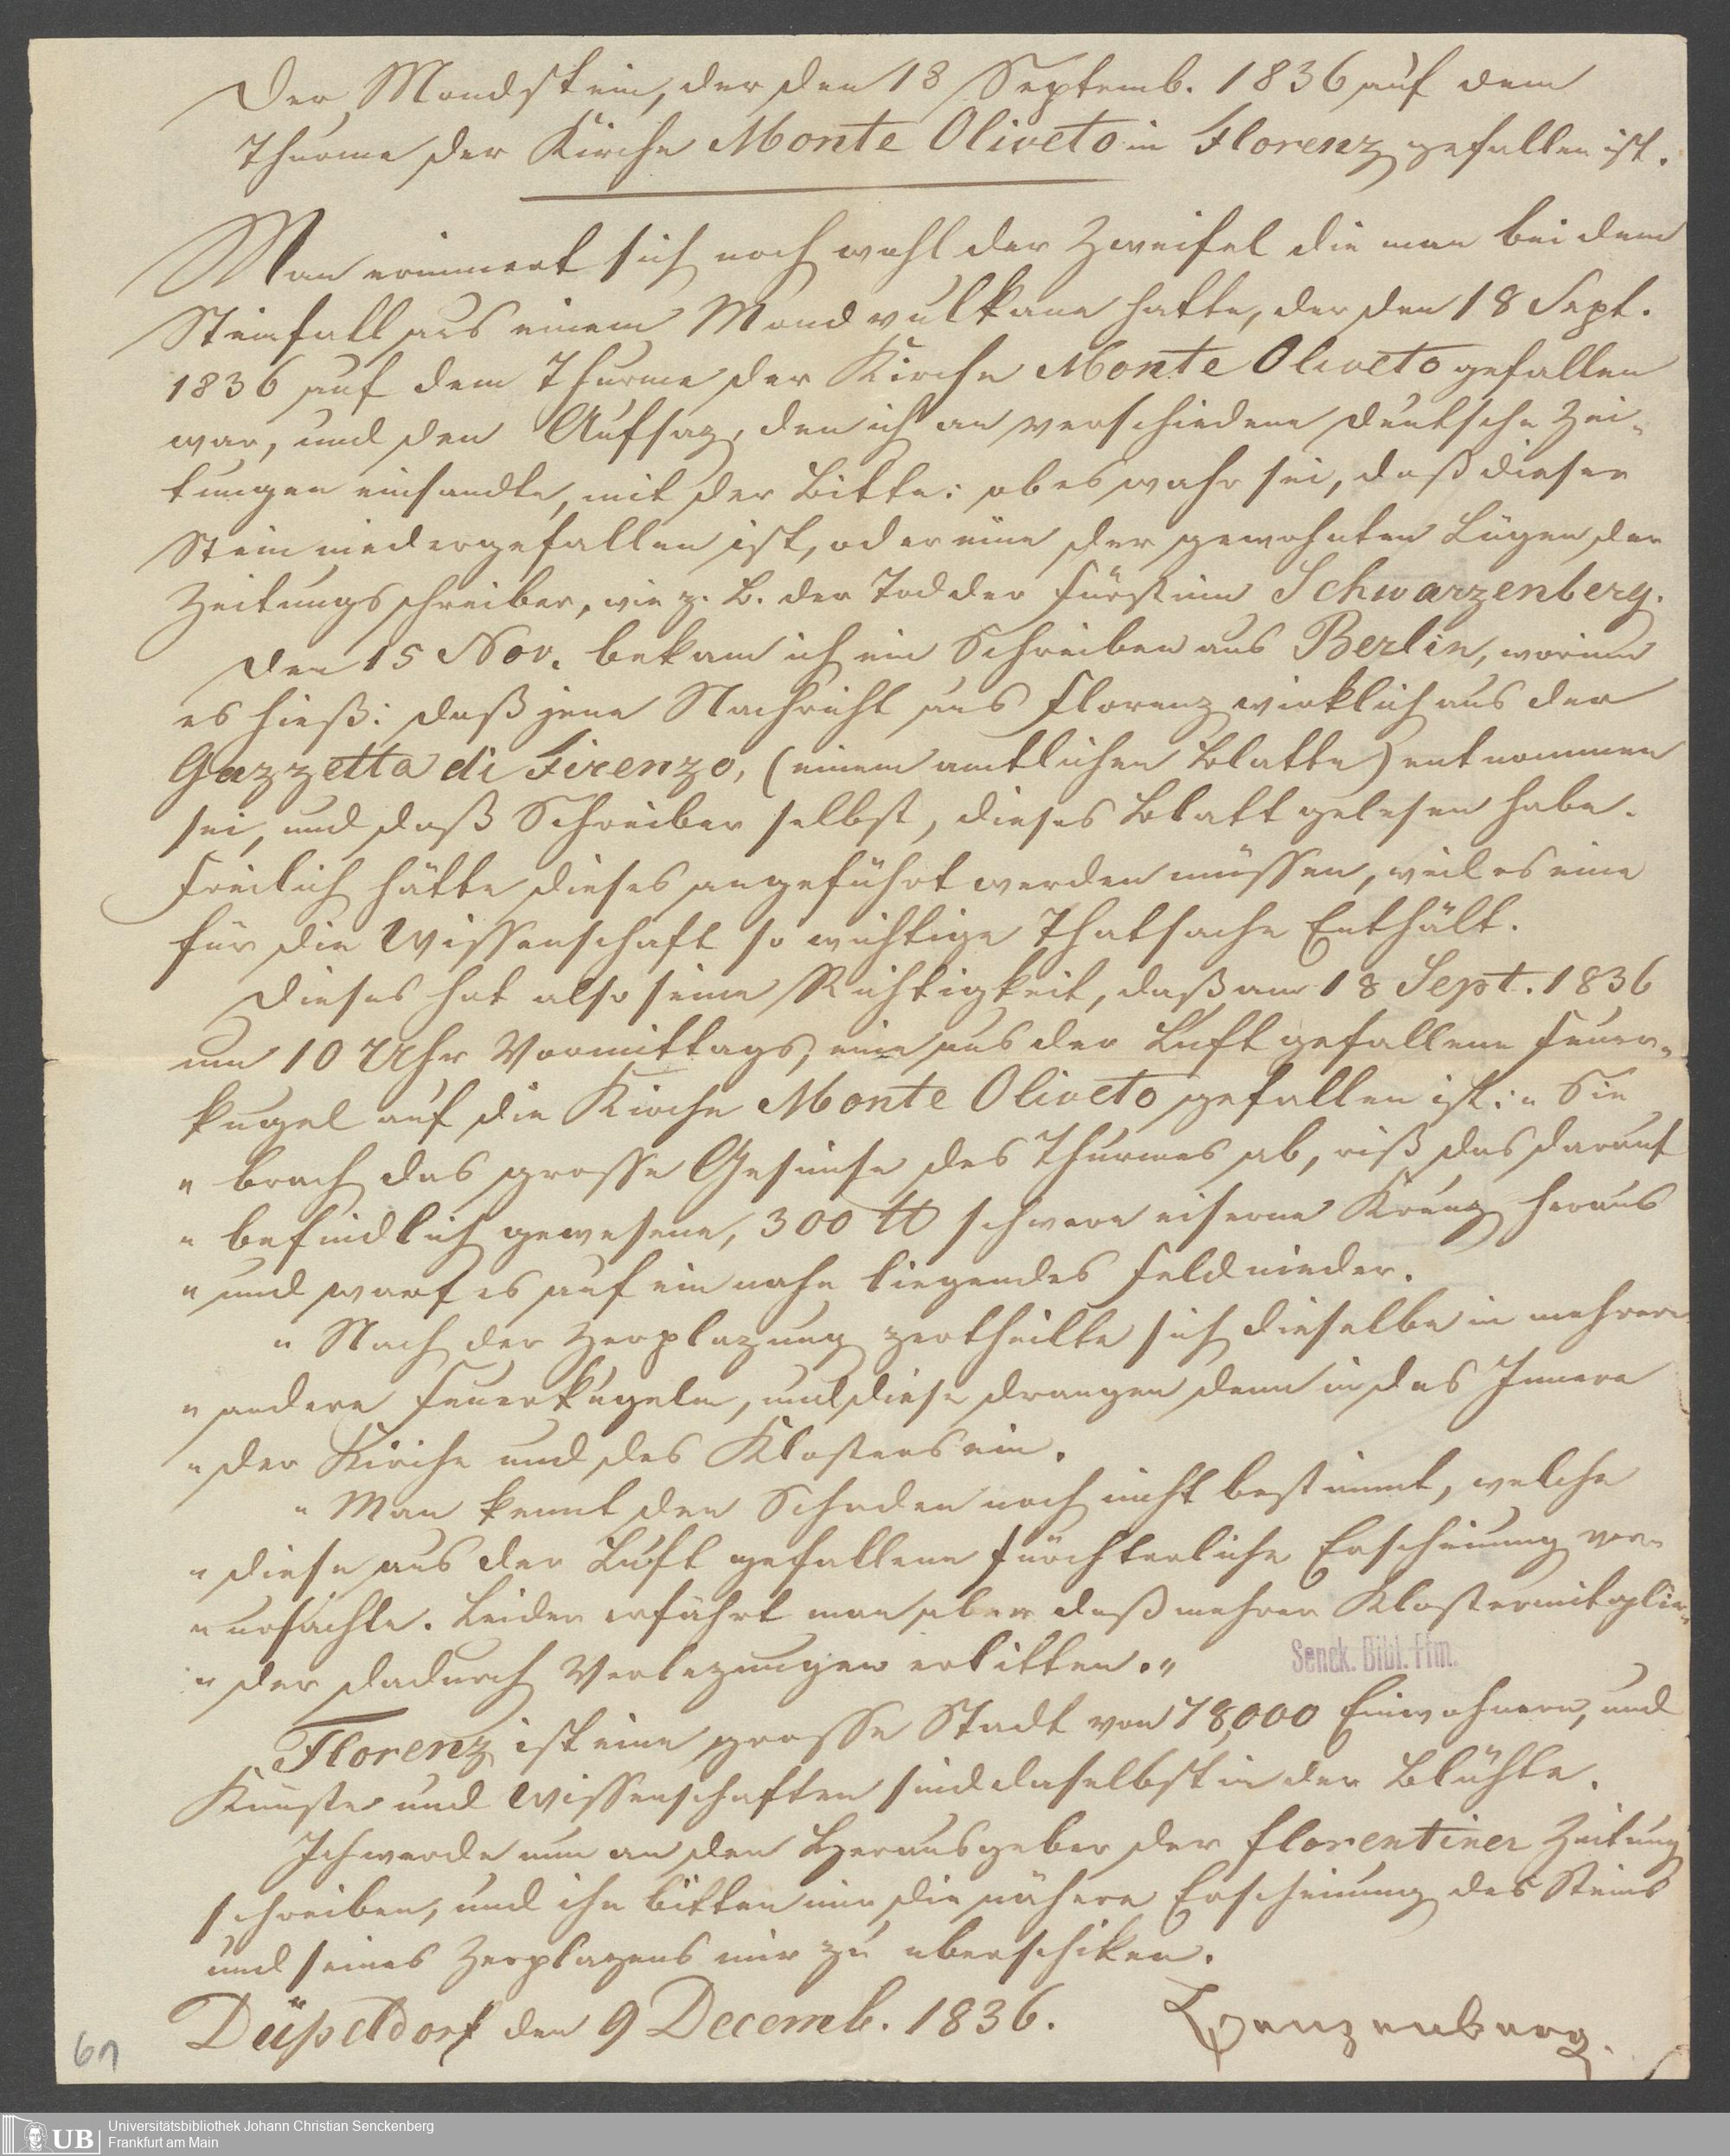 Der Mondstein, der den 18 Septemb. 1836 auf dem
Thurme der Kirche Monte Oliveto in Florenz gefallen ist.
Man erinnert sich noch wohl der Zweifel die man bei dem
Steinfall aus einem Mondvulkane hatte, der den 18 Sept.
1836 auf dem Thurme der Kirche Monte Oliveto gefallen
war, und den Aufsaz, den ich an verschiedene deutsche Zei-
tungen einsandte, mit der Bitte: ob es wahr sei, daß dieser
Stein niedergefallen ist, oder eine der gewohnten Lügen der
Zeitungsschreiber, wie z. B. der Tod der Fürstinn Schwarzenberg.
Den 15 Nov. bekam ich ein Schreiben aus Berlin, worinn
es hieß: daß jene Nachricht aus Florenz wirklich aus der
Gazzetta di Firenzo, (einem amtlichen Blatte) entnommen
sei, und daß Schreiber selbst, dieses Blatt gelesen habe.
Freilich hätte dieses angeführt werden müssen, weil es eine
für die Wissenschaft so wichtige Thatsache Enthält.
Dieses hat also seine Richtigkeit, daß am 18 Sept. 1836
um 10 Uhr Vormittags, eine aus der Luft gefallene Feuer-
kugel auf die Kirche Monte Oliveto gefallen ist: „Sie
„ brach das grosse Gesimse des Thurmes ab, riß das darauf
„ befindlich gewesene, 300 ℔ schwere eiserne Kreuz heraus
„ und warf es auf ein nahe liegendes Feld nieder.
„ Nach der Zerplazung zertheilte sich dieselbe in mehrere
„ andere Feuerkugeln, und diese drangen dann in das Innere
„ der Kirche und des Klosters ein.
„ Man kennt den Schaden noch nicht bestimmt, welche
„ diese aus der Luft gefallene fürchterliche Erscheinung ver-
„ ursachte. Leider erfährt man aber daß mehrer Klostermitglie-
„ der dadurch Verlezungen erlitten.„
Senck. Bibl. Ffm.
Florenz ist eine grosse Stadt von 78,000 Einwohnern, und
Künste und Wissenschaften sind daselbst in der Blühte.
Ich werde nun an den Herausgeber der florentiner Zeitung
schreiben, und ihn bitten mir die nähere Erscheinung des Steins
und seines Zerplazens mir zu uberschiken.
Düsseldorf den 9 Decemb. 1836. Benzenberg.
61
UB
Universitätsbibliothek Johann Christian Senckenberg
Frankfurt am Main